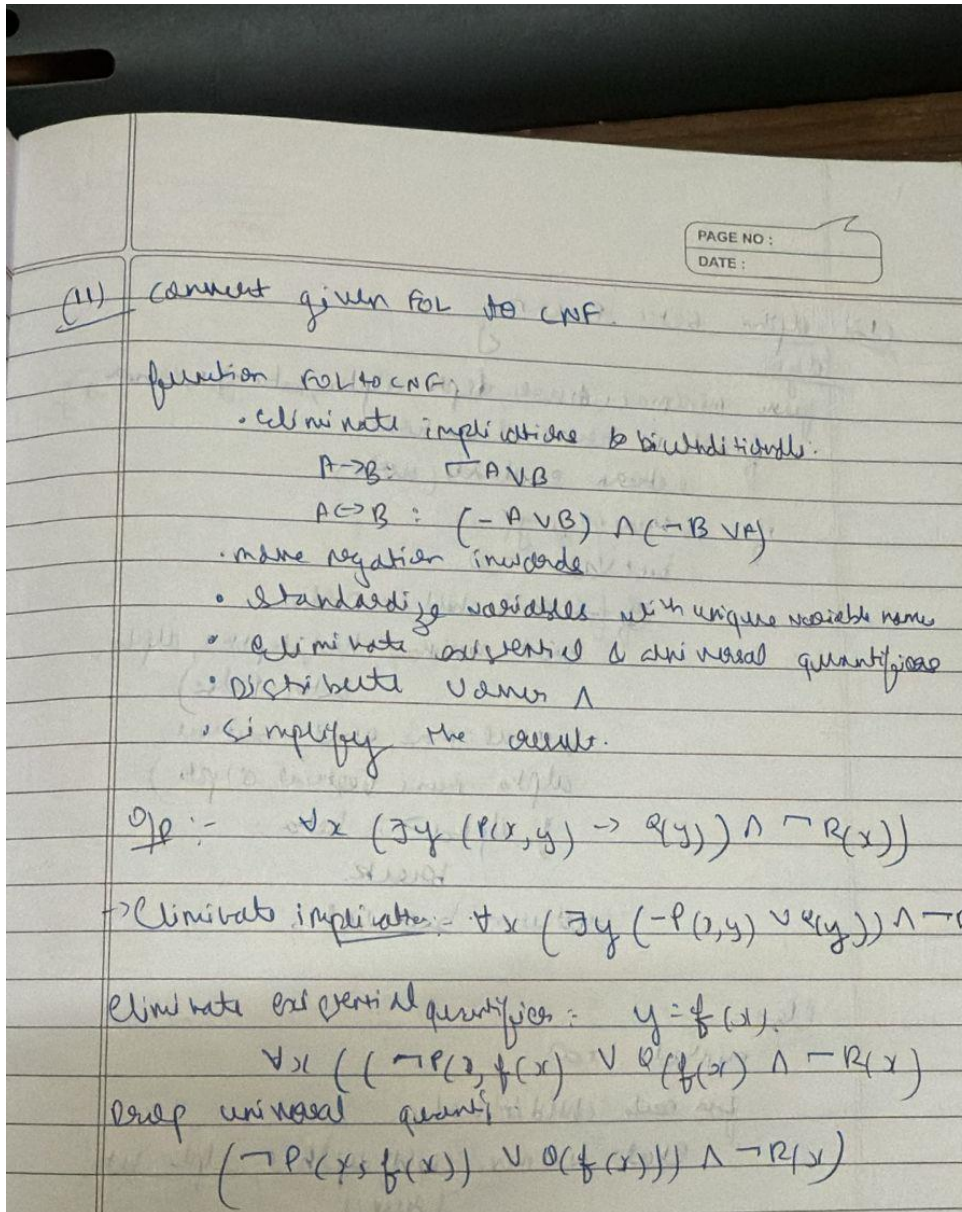 PAGE NO :
DATE :
(11) convert given FOL to CNF.
function FOLtoCNF:
• eliminate implications & biconditionals.
A->B: ¬A∨B
A<->B : (-A∨B) ∧ (¬B∨A)
• move negation inwards
• standardize variables with unique variable name
• eliminate existential & universal quantifiers
• Distribute ∨ over ∧
• simplify the result.
O/p :- ∀x (∃y (P(x,y) -> Q(y)) ∧ ¬R(x))
-> Eliminate implication :- ∀x (∃y (-P(x,y) ∨ Q(y)) ∧ ¬
eliminate existential quantifier : y=f(x).
∀x ((¬P(x, f(x) ∨ Q(f(x) ∧ ¬R(x)
Drop universal quanti
(¬P(x, f(x)) ∨ Q(f(x))) ∧ ¬R(x)